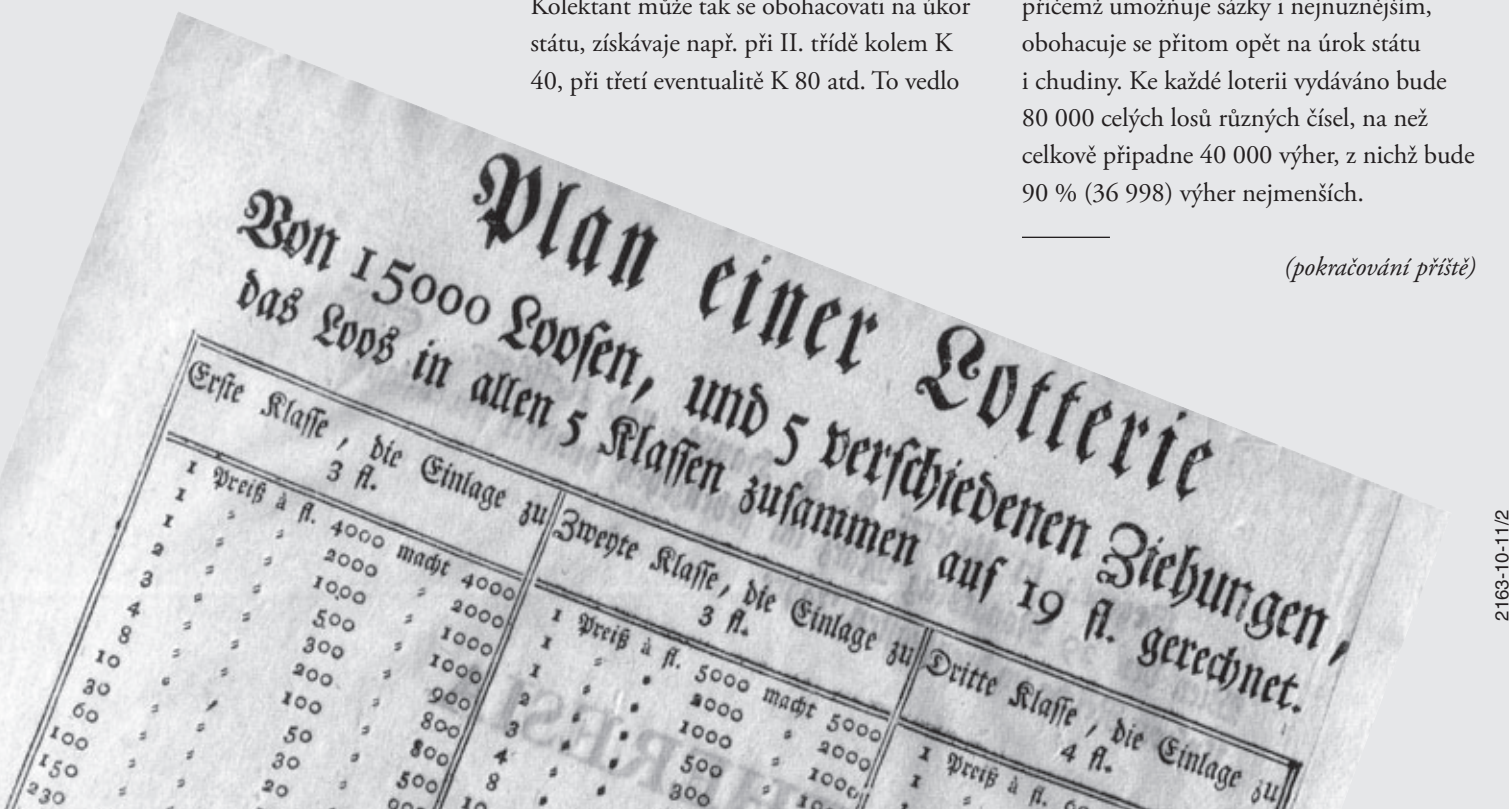 Kolektant může tak se obohacovati na úkor
státu, získávaje např. při II. třídě kolem K
40, při třetí eventualitě K 80 atd. To vedlo
přičemž umožňuje sázky i nejnuznějším,
obohacuje se přitom opět na úrok státu
i chudiny. Ke každé loterii vydáváno bude
80 000 celých losů různých čísel, na než
celkově připadne 40 000 výher, z nichž bude
90 % (36 998) výher nejmenších.
(pokračování příště)
Plan einer Lotterie
Von 15000 Loosen, und 5 verschiedenen Ziehungen,
das Loos in allen 5 Klassen zusammen auf 19 fl. gerechnet.
Erste Klasse, die Einlage zu
3 fl.
1 Preiß à fl. 4000 macht 4000
1 " " 2000 " 2000
1 " " 1000 " 1000
2 " " 500 " 1000
3 " " 300 " 900
4 " " 200 " 800
8 " " 100 " 800
10 " " 50 " 500
30 " " 30
60 " " 20
100
150
230
Zweyte Klasse, die Einlage zu
3 fl.
1 Preiß à fl. 5000 macht 5000
1 " " 2000 " 2000
1 " " 1000 " 1000
2 " " 500 " 1000
3 " " 300
4
8
10
Dritte Klasse, die Einlage zu
4 fl.
1 Preiß à fl.
1
2163-10-11/2